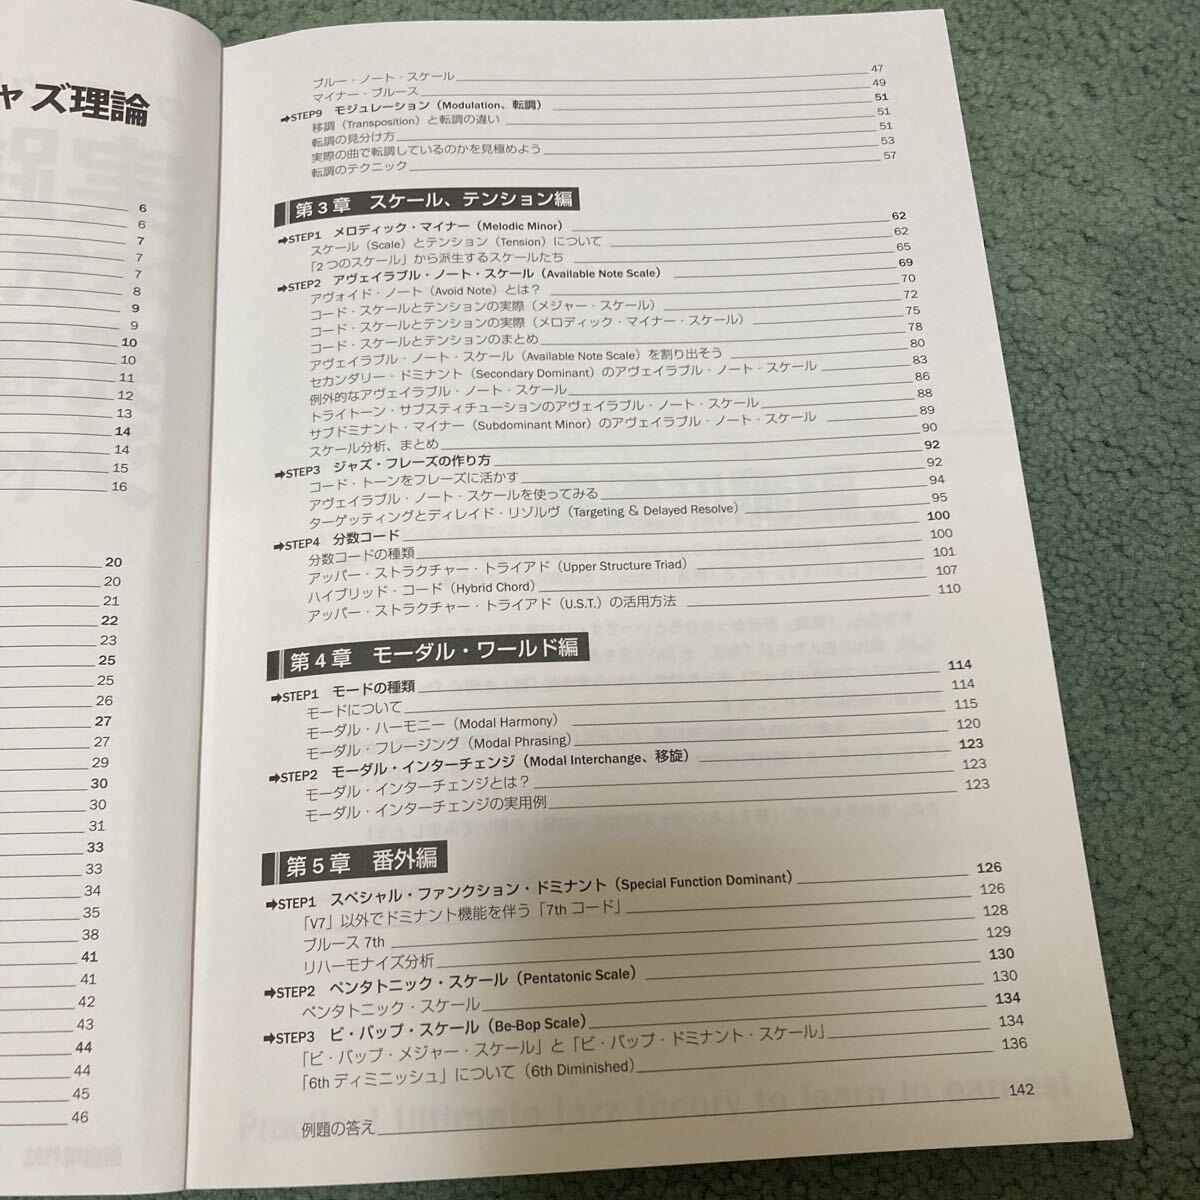 ャズ理論
6
6
7
7
7
8
9
9
10
10
11
12
13
14
14
15
16
20
20
21
22
23
25
25
26
27
27
29
30
30
31
33
33
34
35
38
41
41
42
43
44
44
45
46
ブルー・ノート・スケール 47
マイナー・ブルース 49
➡STEP9 モジュレーション（Modulation、転調） 51
移調（Transposition）と転調の違い 51
転調の見分け方 51
実際の曲で転調しているのかを見極めよう 53
転調のテクニック 57
第3章 スケール、テンション編
➡STEP1 メロディック・マイナー（Melodic Minor） 62
スケール（Scale）とテンション（Tension）について 62
「2つのスケール」から派生するスケールたち 65
➡STEP2 アヴェイラブル・ノート・スケール（Available Note Scale） 69
アヴォイド・ノート（Avoid Note）とは？ 70
コード・スケールとテンションの実際（メジャー・スケール） 72
コード・スケールとテンションの実際（メロディック・マイナー・スケール） 75
コード・スケールとテンションのまとめ 78
アヴェイラブル・ノート・スケール（Available Note Scale）を割り出そう 80
セカンダリー・ドミナント（Secondary Dominant）のアヴェイラブル・ノート・スケール 83
例外的なアヴェイラブル・ノート・スケール 86
トライトーン・サブスティチューションのアヴェイラブル・ノート・スケール 88
サブドミナント・マイナー（Subdominant Minor）のアヴェイラブル・ノート・スケール 89
スケール分析、まとめ 90
➡STEP3 ジャズ・フレーズの作り方 92
コード・トーンをフレーズに活かす 92
アヴェイラブル・ノート・スケールを使ってみる 94
ターゲッティングとディレイド・リゾルヴ（Targeting & Delayed Resolve） 95
➡STEP4 分数コード 100
分数コードの種類 100
アッパー・ストラクチャー・トライアド（Upper Structure Triad） 101
ハイブリッド・コード（Hybrid Chord） 107
アッパー・ストラクチャー・トライアド（U.S.T.）の活用方法 110
第4章 モーダル・ワールド編
➡STEP1 モードの種類 114
モードについて 114
モーダル・ハーモニー（Modal Harmony） 115
モーダル・フレージング（Modal Phrasing） 120
➡STEP2 モーダル・インターチェンジ（Modal Interchange、移旋） 123
モーダル・インターチェンジとは？ 123
モーダル・インターチェンジの実用例 123
第5章 番外編
➡STEP1 スペシャル・ファンクション・ドミナント（Special Function Dominant） 126
「V7」以外でドミナント機能を伴う「7thコード」 126
ブルース7th 128
リハーモナイズ分析 129
➡STEP2 ペンタトニック・スケール（Pentatonic Scale） 130
ペンタトニック・スケール 130
➡STEP3 ビ・バップ・スケール（Be-Bop Scale） 134
「ビ・バップ・メジャー・スケール」と「ビ・バップ・ドミナント・スケール」 134
「6thディミニッシュ」について（6th Diminished） 136
例題の答え 142